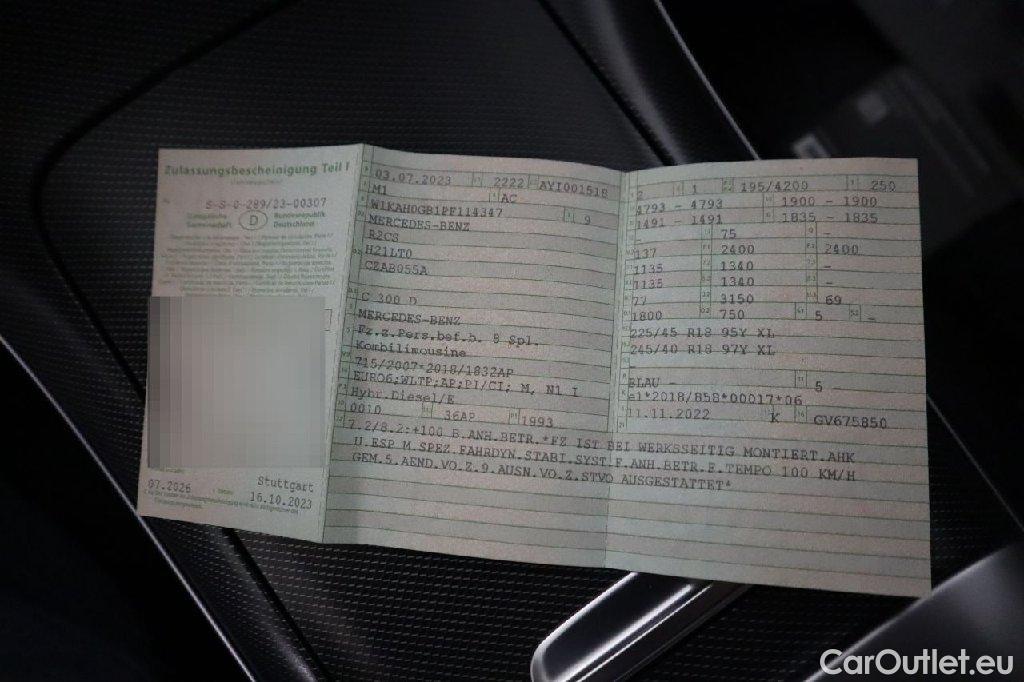 Zulassungsbescheinigung Teil I
S-S-0-289/23-00307
Europäische Gemeinschaft
D
Bundesrepublik Deutschland
07.2026
Stuttgart
16.10.2023
03.07.2023 2222 AYI001518
M1 AC
W1KAH0GB1PF114347 9
MERCEDES-BENZ
R2CS
H21LT0
CZAB055A
C 300 D
MERCEDES-BENZ
Fz.z.Pers.bef.b. 8 Spl.
Kombilimousine
715/2007*2018/1832AP
EURO6;WLTP;AP;PI/CI; M, N1 I
Hybr.Diesel/E
0010 36AP 1993
2 1 195/4200 250
4793 - 4793 1900 - 1900
1491 - 1491 1835 - 1835
- 75 -
137 2400 2400
1135 1340 -
1135 1340 -
77 3150 69
1800 750 5 -
225/45 R18 95Y XL
245/40 R18 97Y XL
-
BLAU - 5 -
e1*2018/858*00017*06
11.11.2022 K GV675850
7.2/8.2:+100 B.ANH.BETR.*FZ IST BEI WERKSSEITIG MONTIERT.AHK
U.ESP M.SPEZ.FAHRDYN.STABI.SYST.F.ANH.BETR.F.TEMPO 100 KM/H
GEM.5.AEND.VO.Z.9.AUSN.VO.Z.STVO AUSGESTATTET*
CarOutlet.eu